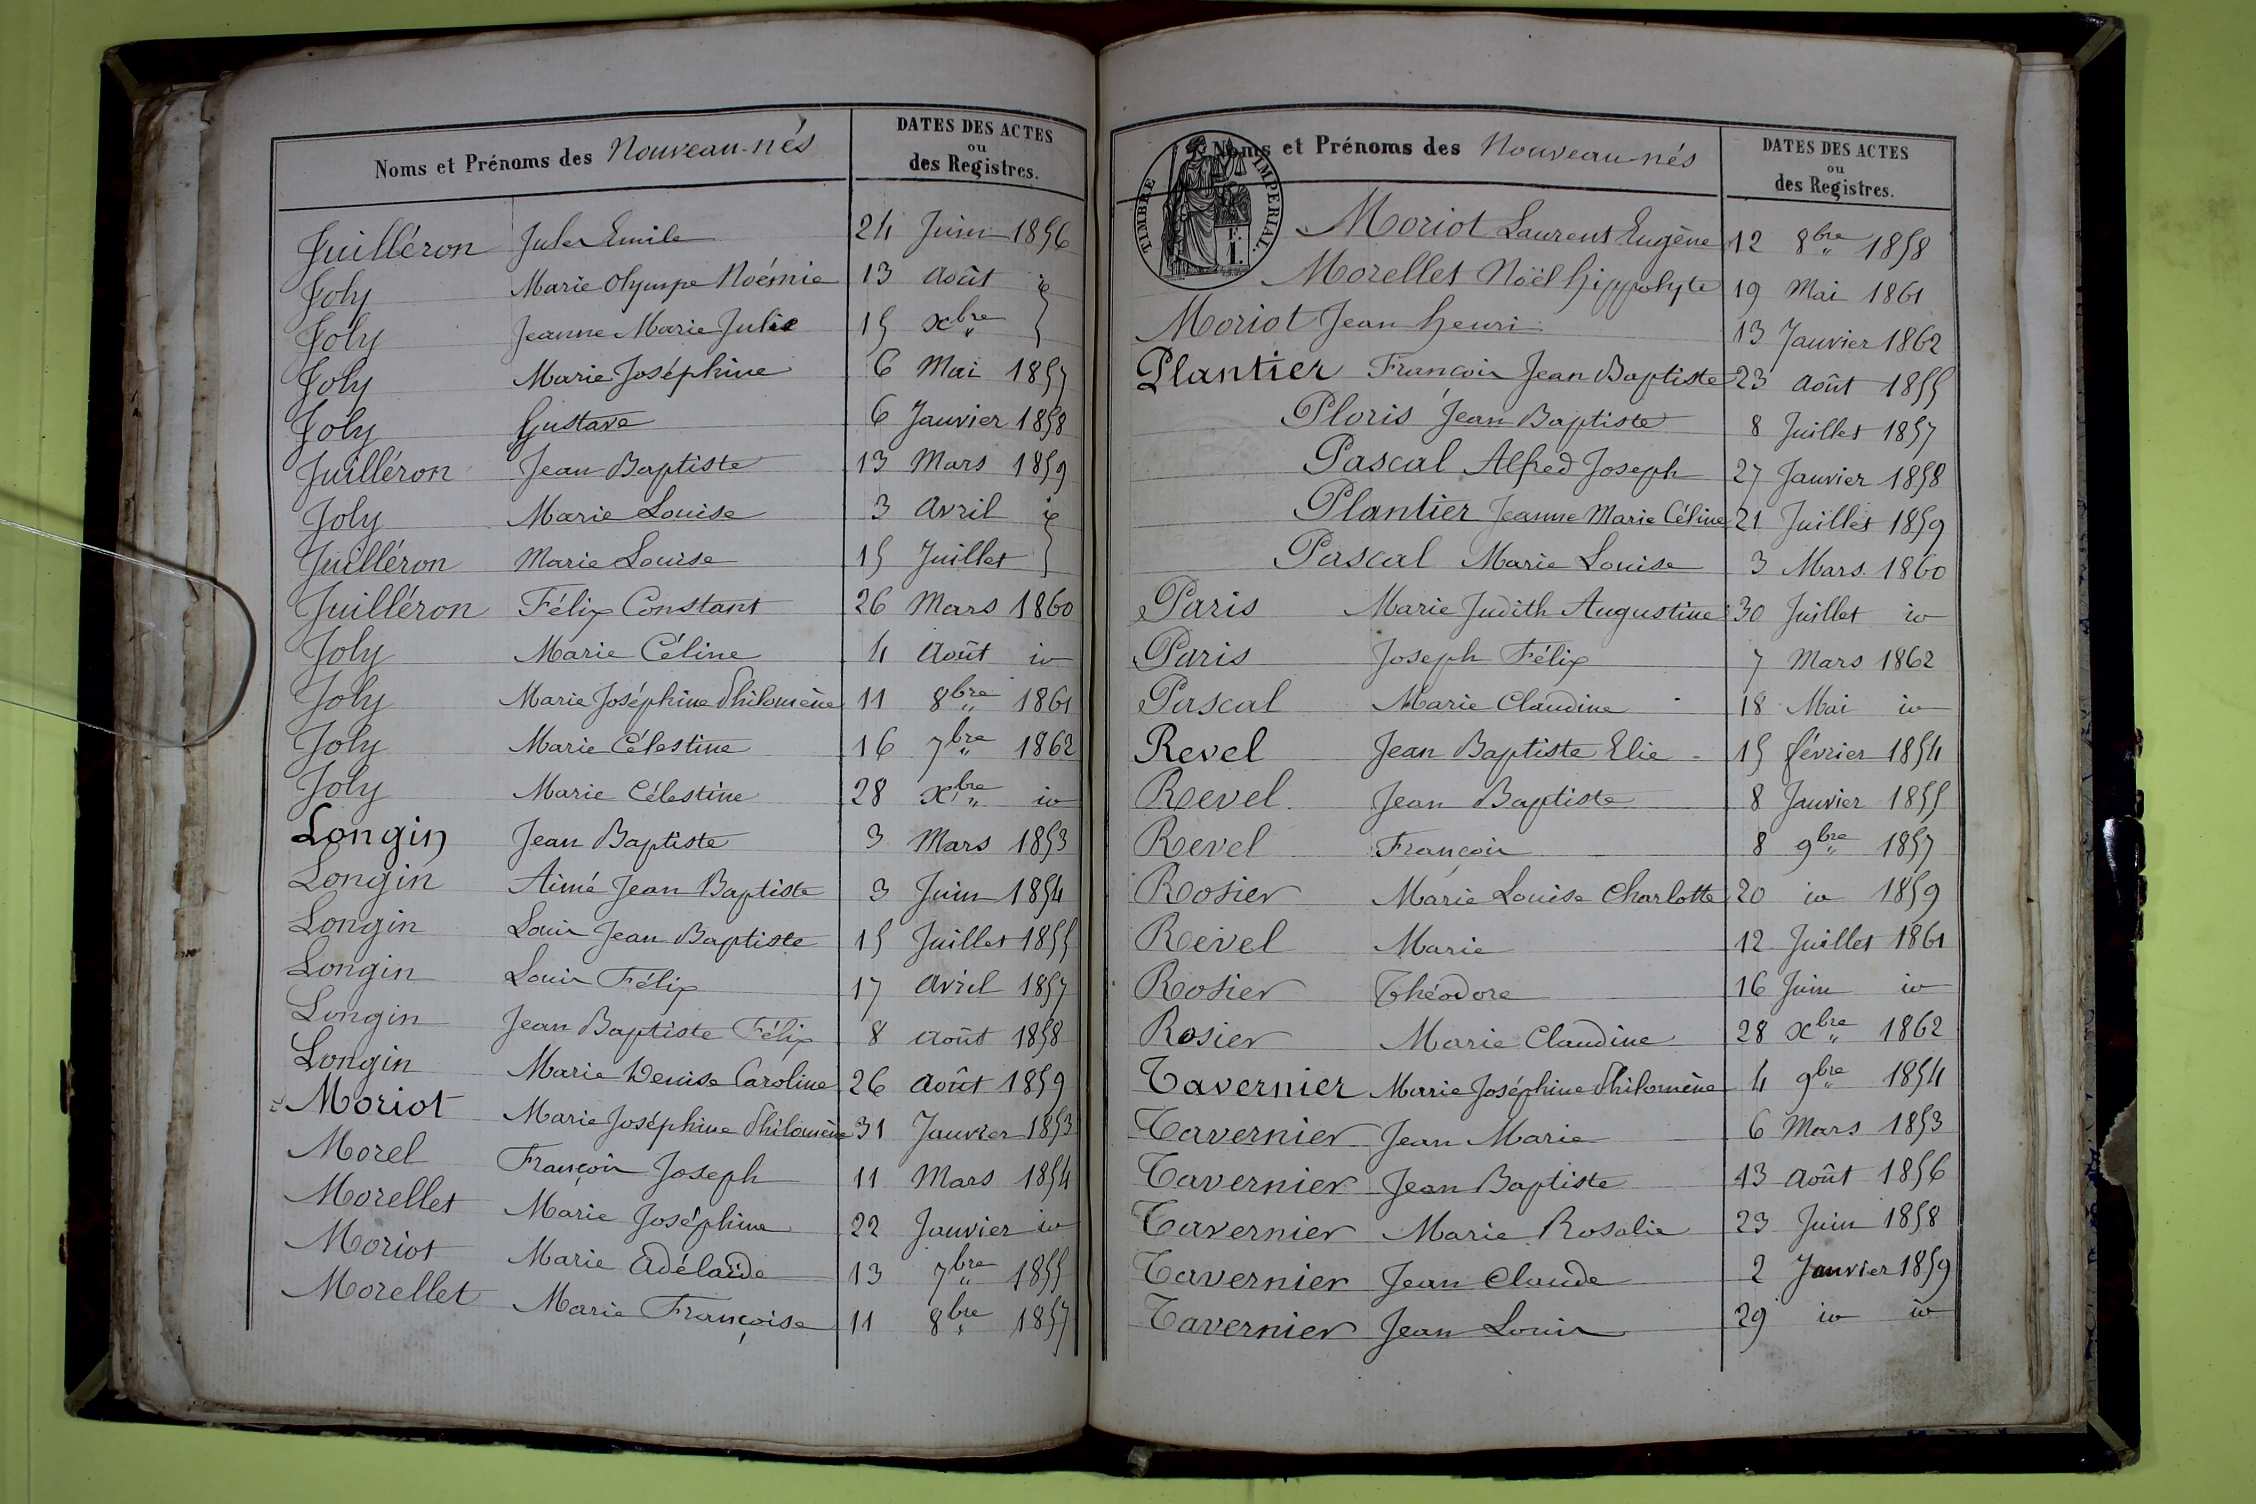 Noms et Prénoms des Nouveau-nés
DATES DES ACTES
ou
des Registres.
Juilléron Jules Emile 24 Juin 1856
Joly Marie Olympe Noémie 13 août id
Joly Jeanne Marie Julie 15 xbre "
Joly Marie Joséphine 6 Mai 1857
Joly Gustave 6 Janvier 1858
Juilléron Jean Baptiste 13 Mars 1859
Joly Marie Louise 3 Avril id
Juilléron Marie Louise 15 Juillet
Juilléron Félix Constant 26 Mars 1860
Joly Marie Céline 4 Août id
Joly Marie Joséphine Philomène 11 8bre 1861
Joly Marie Célestine 16 7bre 1862
Joly Marie Célestine 28 xbre id
Longin Jean Baptiste 3 Mars 1853
Longin Aimé Jean Baptiste 3 Juin 1854
Longin Louis Jean Baptiste 15 Juillet 1855
Longin Louis Félix 17 Avril 1857
Longin Jean Baptiste Félix 8 août 1858
Longin Marie Denise Caroline 26 Août 1859
Moriot Marie Joséphine Philomène 31 Janvier 1853
Morel François Joseph 11 Mars 1854
Morellet Marie Joséphine 22 Janvier id
Moriot Marie Adélaïde 13 7bre 1855
Morellet Marie Françoise 11 8bre 1857
Noms et Prénoms des Nouveau-nés
DATES DES ACTES
ou
des Registres.
TIMBRE IMPERIAL.
1 F.
Moriot Laurent Eugène 12 8bre 1858
Morellet Noël hippolyte 19 Mai 1861
Moriot Jean henri 13 Janvier 1862
Plantier François Jean Baptiste 23 Août 1855
Ploris Jean Baptiste 8 Juillet 1857
Pascal Alfred Joseph 27 Janvier 1858
Plantier Jeanne Marie Céline 21 Juillet 1859
Pascal Marie Louise 3 Mars 1860
Paris Marie Judith Augustine 30 Juillet id
Paris Joseph Félix 7 Mars 1862
Pascal Marie Claudine 18 Mai id
Revel Jean Baptiste Elie 15 février 1854
Revel Jean Baptiste 8 Janvier 1855
Revel François 8 9bre 1857
Rosier Marie Louise Charlotte 20 id 1859
Revel Marie 12 Juillet 1861
Rosier Théodore 16 Juin id
Rosier Marie Claudine 28 xbre 1862
Tavernier Marie Joséphine Philomène 4 9bre 1854
Tavernier Jean Marie 6 Mars 1853
Tavernier Jean Baptiste 13 Août 1856
Tavernier Marie Rosalie 23 Juin 1858
Tavernier Jean Claude 2 Janvier 1859
Tavernier Jean Louis 29 id id